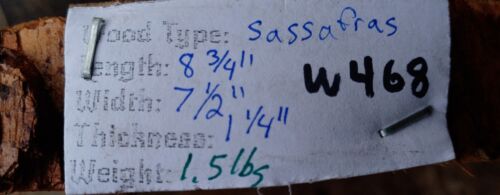 Wood Type: Sassafras
Length: 8 3/4"
W468
Width: 7 1/2"
Thickness: 1 1/4"
Weight: 1.5 lbs